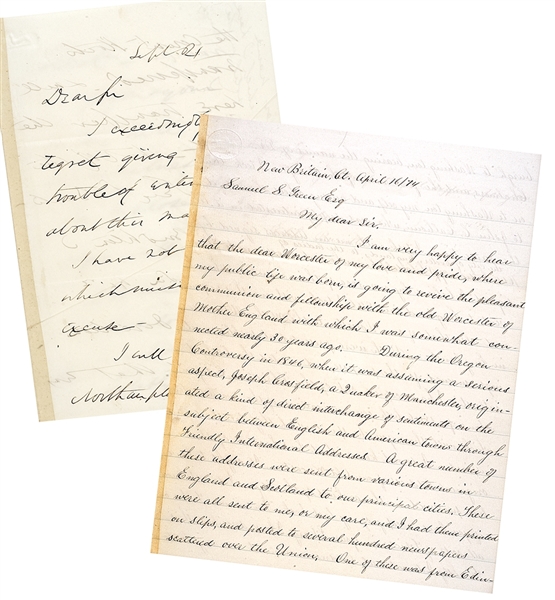 Sept. 21
Dear Sir
I exceedingly
regret giving
trouble of
about this
I have not
which
excuse—
I will
New Britain, Ct. April 16/74
Samuel S. Green Esq
My dear Sir,
I am very happy to hear
that the dear Worcester of my love and pride, where
my public life was born, is going to revive the pleasant
communion and fellowship with the old Worcester of
Mother England with which I was somewhat con-
nected nearly 30 years ago. During the Oregon
Controversy in 1846, when it was assuming a serious
aspect, Joseph Crosfield, a Quaker of Manchester, origin-
ated a kind of direct interchange of sentiments on the
subject between English and American towns through
Friendly International Addresses A great number of
these addresses were sent from various towns in
England and Scotland to our principal cities. These
were all sent to me, or my care, and I had them printed
on slips and posted to several hundred newspapers
scattered over the Union. One of these was from Edin-